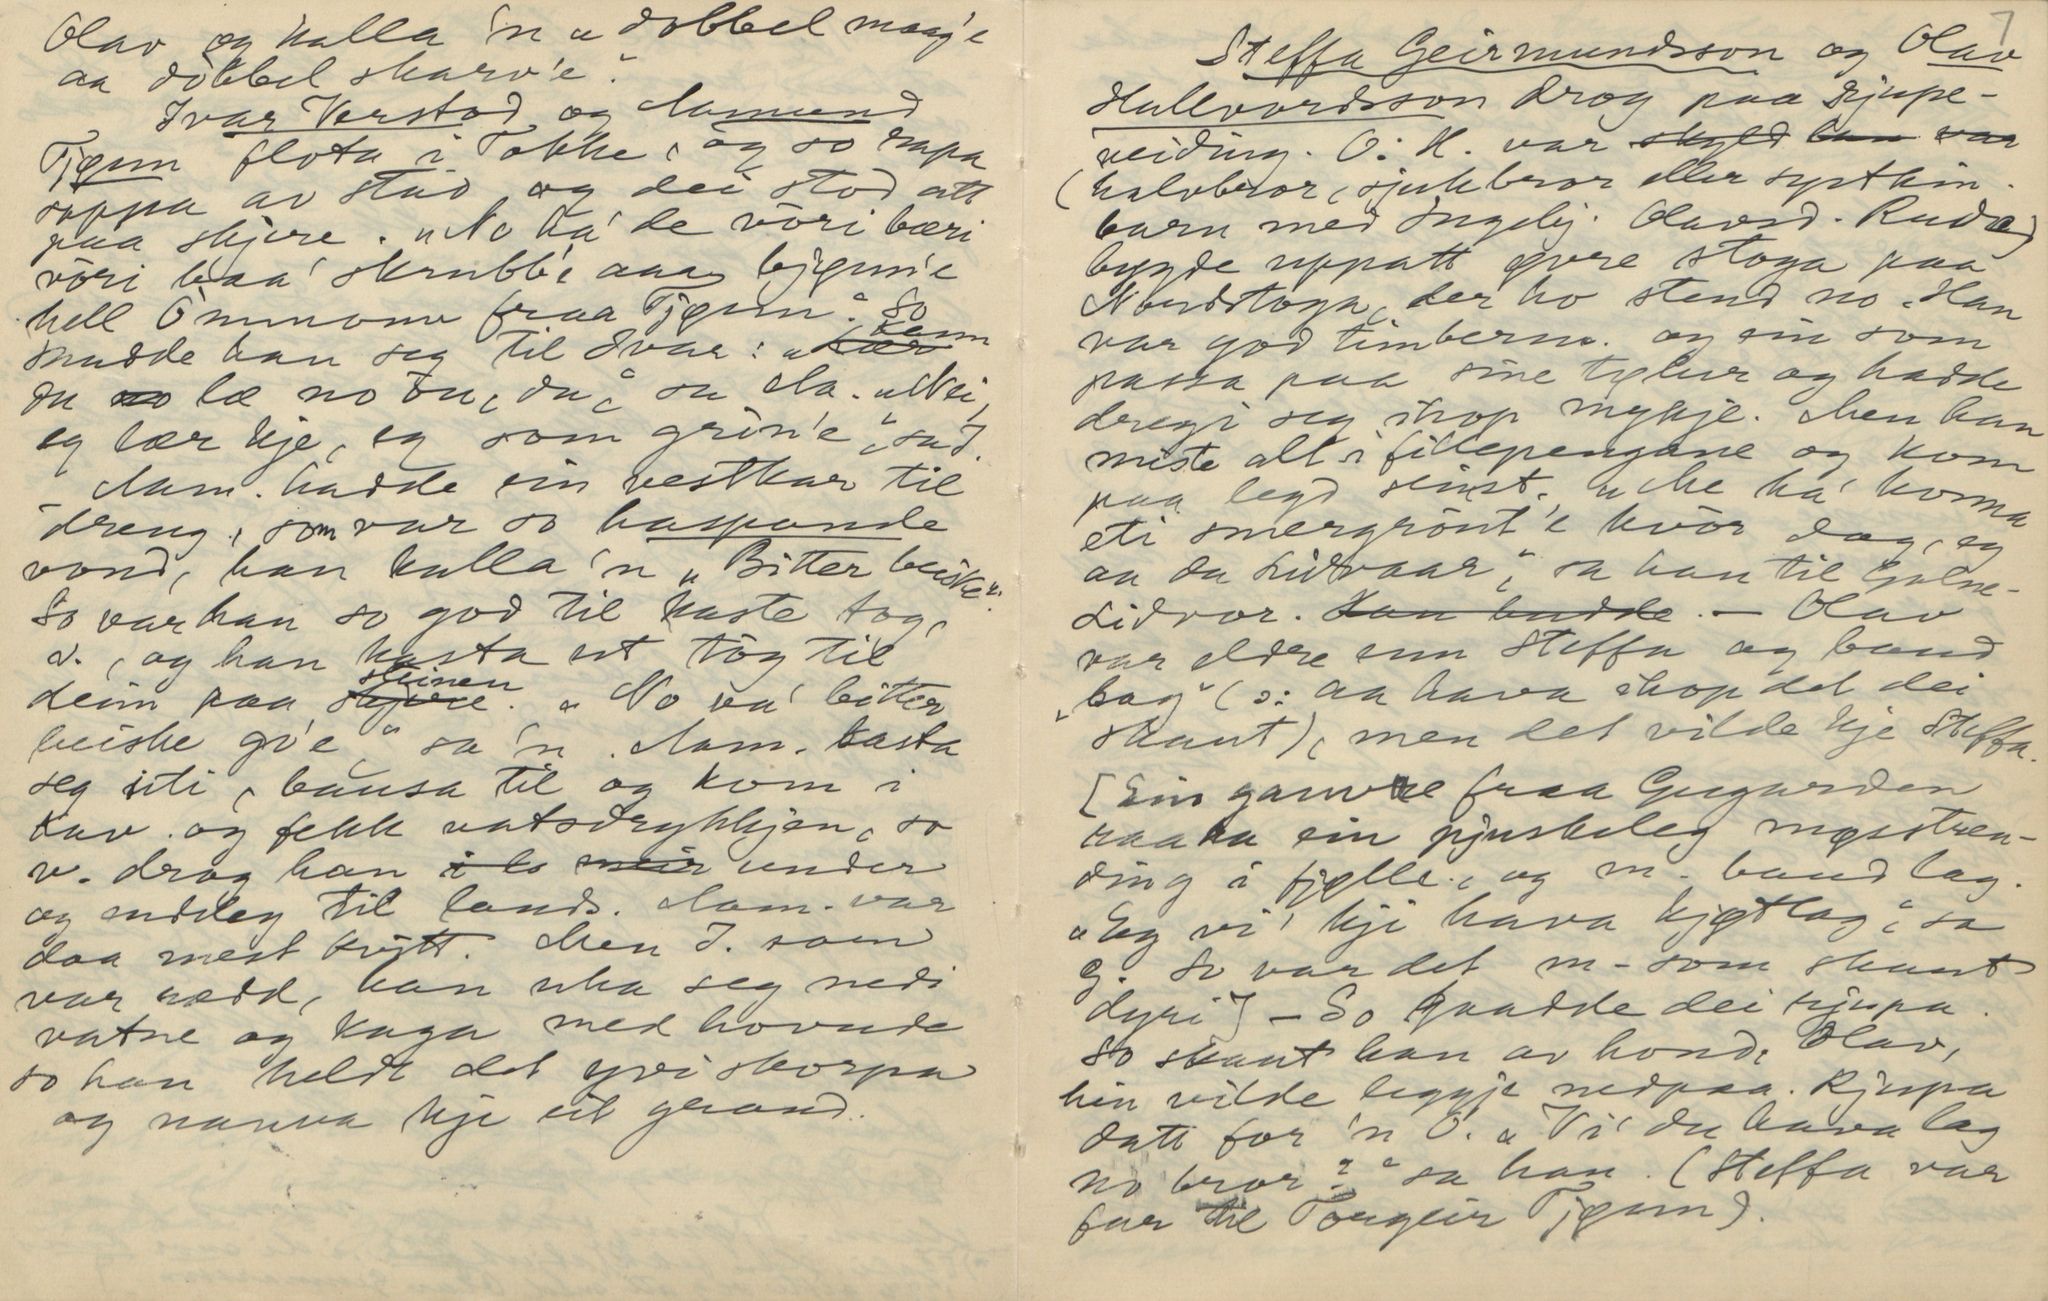 Olav og kalla 'n „dobbel mag'e
aa dobbel skarv'e“.
Ivar Verstad og Aamund
Tjønn fløta i Tokke, og so rapa
soppa av stad og dei stod att
paa skjere. „No ha' de vöri bæri
vöri baa' skrubb'e aaa bjønn'e
hell Ommome fraa Tjønn“. So
snudde han seg til Ivar: „kann
du læ no òu, du“, sa Aa. „Nei,
eg lær kje, eg som grin'e“, sa I.
- Aam. hadde ein vestkar til
dreng, som var so haspande
vond, han kalla 'n „Bitterbeiske“.
So var han so god til kaste tog,
v., og han kasta ut tog til
deim paa steinen. „No va' bitter
beiske go'e“, sa 'n. Aam. kasta
seg uti, bausa til og kom i
kav. og fekk vatsdrykkjen, so
v. drog han under
og uddeg til lands. Aam. var
daa mest kvitt. Men I. som
var rædd, han uka seg nedi
vatne og kaga med hovude
so han heldt det yvi skorpa
og nauva kje eit grand.
7
Steffa Geirmundsson og Olav
Hallvordsson drog paa Rjupe-
veiding. O. H. var skyld han var
(halvbror, sjukbror eller systkin-
barn med Ingebj. Olavsd. Rudæ)
bygde uppatt øvre stoga paa
Nordstoga, der ho stend no. Han
var god timberm. og ein som
passa paa sine tylur og hadde
dregi seg ihop mykje. Men han
miste alt i fillepengane og kom
paa legd seinst. „Me ha' komma
eti smergrönt'e kvòr dag, eg
aa du Lidvaar“, sa han til Galne-
Lidvor. Han hadde. — Olav
var eldre enn Steffa og baud
„lag“ (ɔ: aa hava ihop det dei
skaut), men det vilde kje Steffa.
[Ein gamve fraa Gugarden
raaka ein pjuskeleg møsstren-
ding i fjølle., og m. baud lag.
„Eg vi' kji hava kjøtlag“, sa
g. So var det m- som skaut
dyri] — So gaadde dei rjupa.
So skaut han av hond, Olav,
hin vilde leggje nedpaa. Rjupa
datt for 'n O. „Vi' du hava lag
no bror?“ sa han. (Steffa var
far til Torgeir Tjønn).